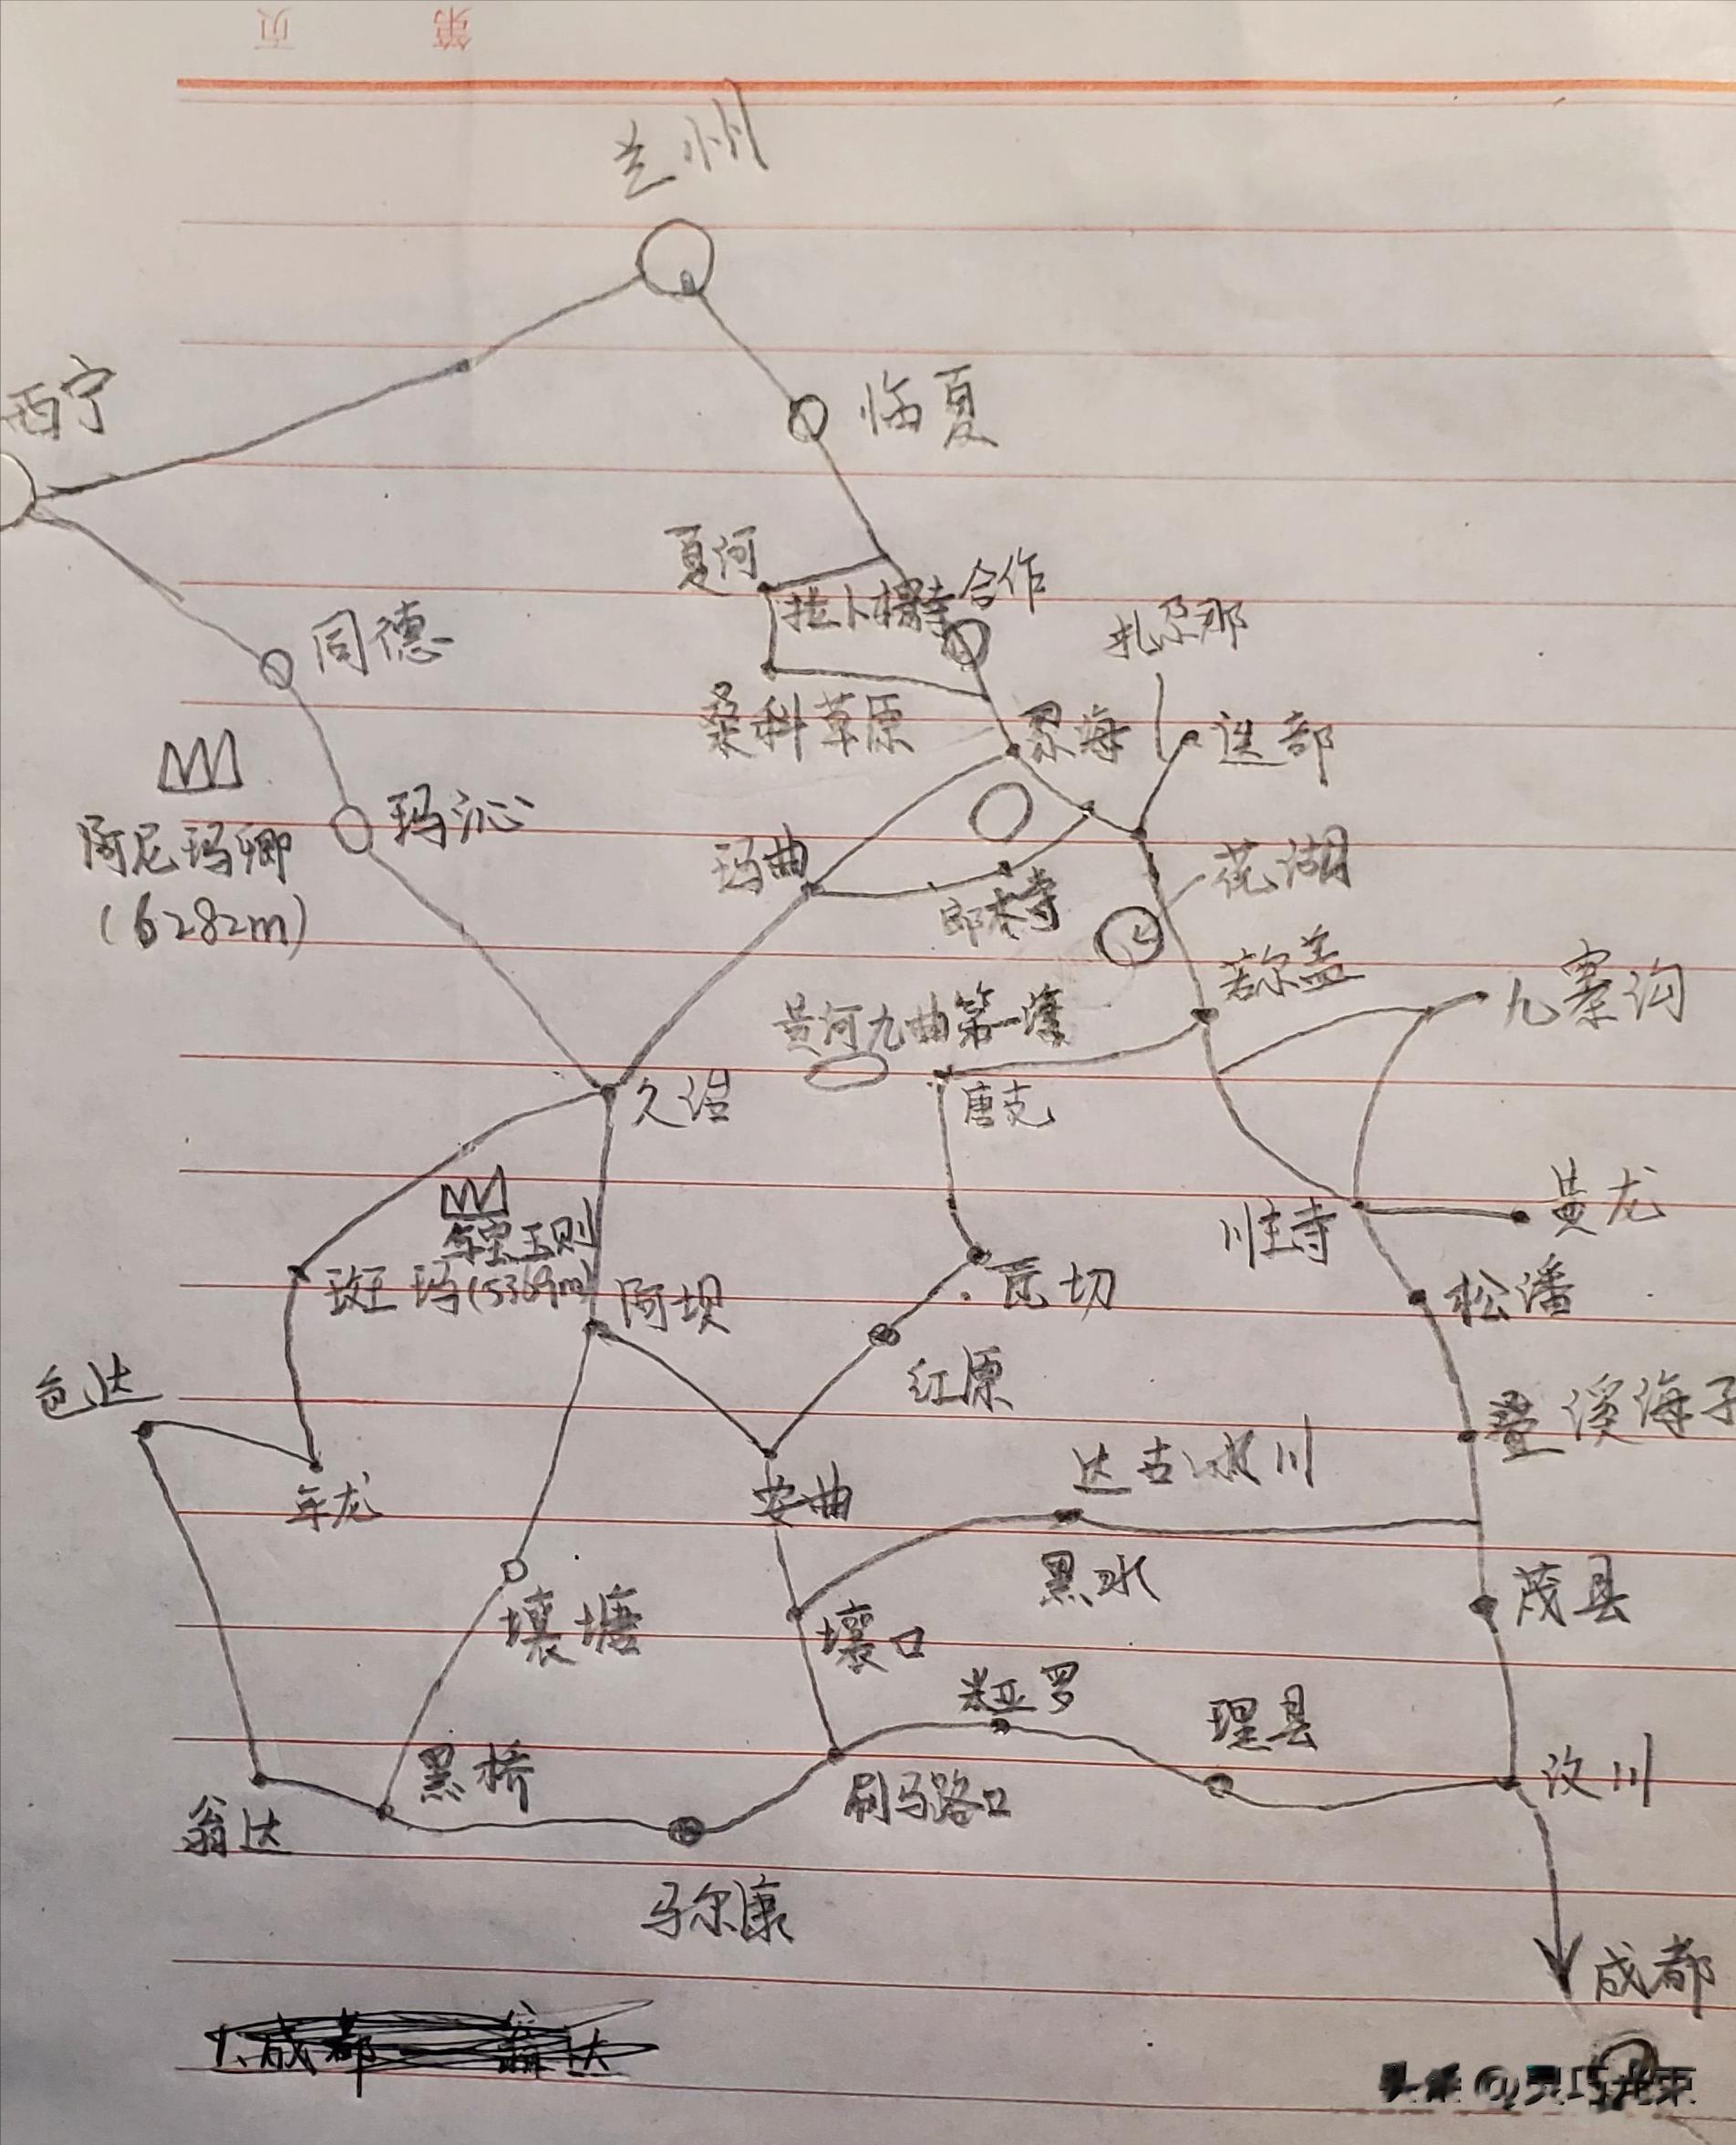 第 页
兰州
西宁
临夏
夏河
合作
拉卜楞寺
扎尕那
同德
桑科草原
尕海
迭部
玛沁
阿尼玛卿
(6282m)
玛曲
花湖
郎木寺
若尔盖
九寨沟
黄河九曲第一湾
久治
唐克
川主寺
黄龙
年宝玉则
(5369m)
班玛
阿坝
瓦切
松潘
色达
红原
叠溪海子
年龙
安曲
达古冰川
黑水
茂县
壤塘
壤口
米亚罗
理县
黑桥
刷马路口
汶川
翁达
马尔康
成都
1、成都 翁达
头条